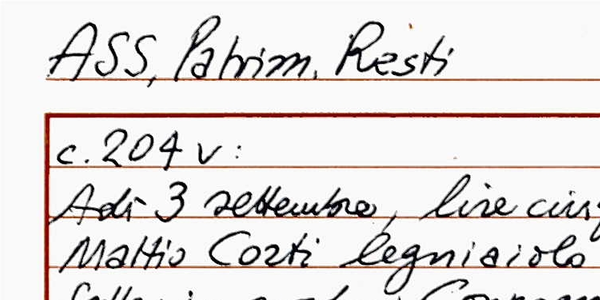 ASS, Patrim. Resti
c. 204 v:
Adi 3 settembre, lire cinq
Mattio Corti legniaiolo